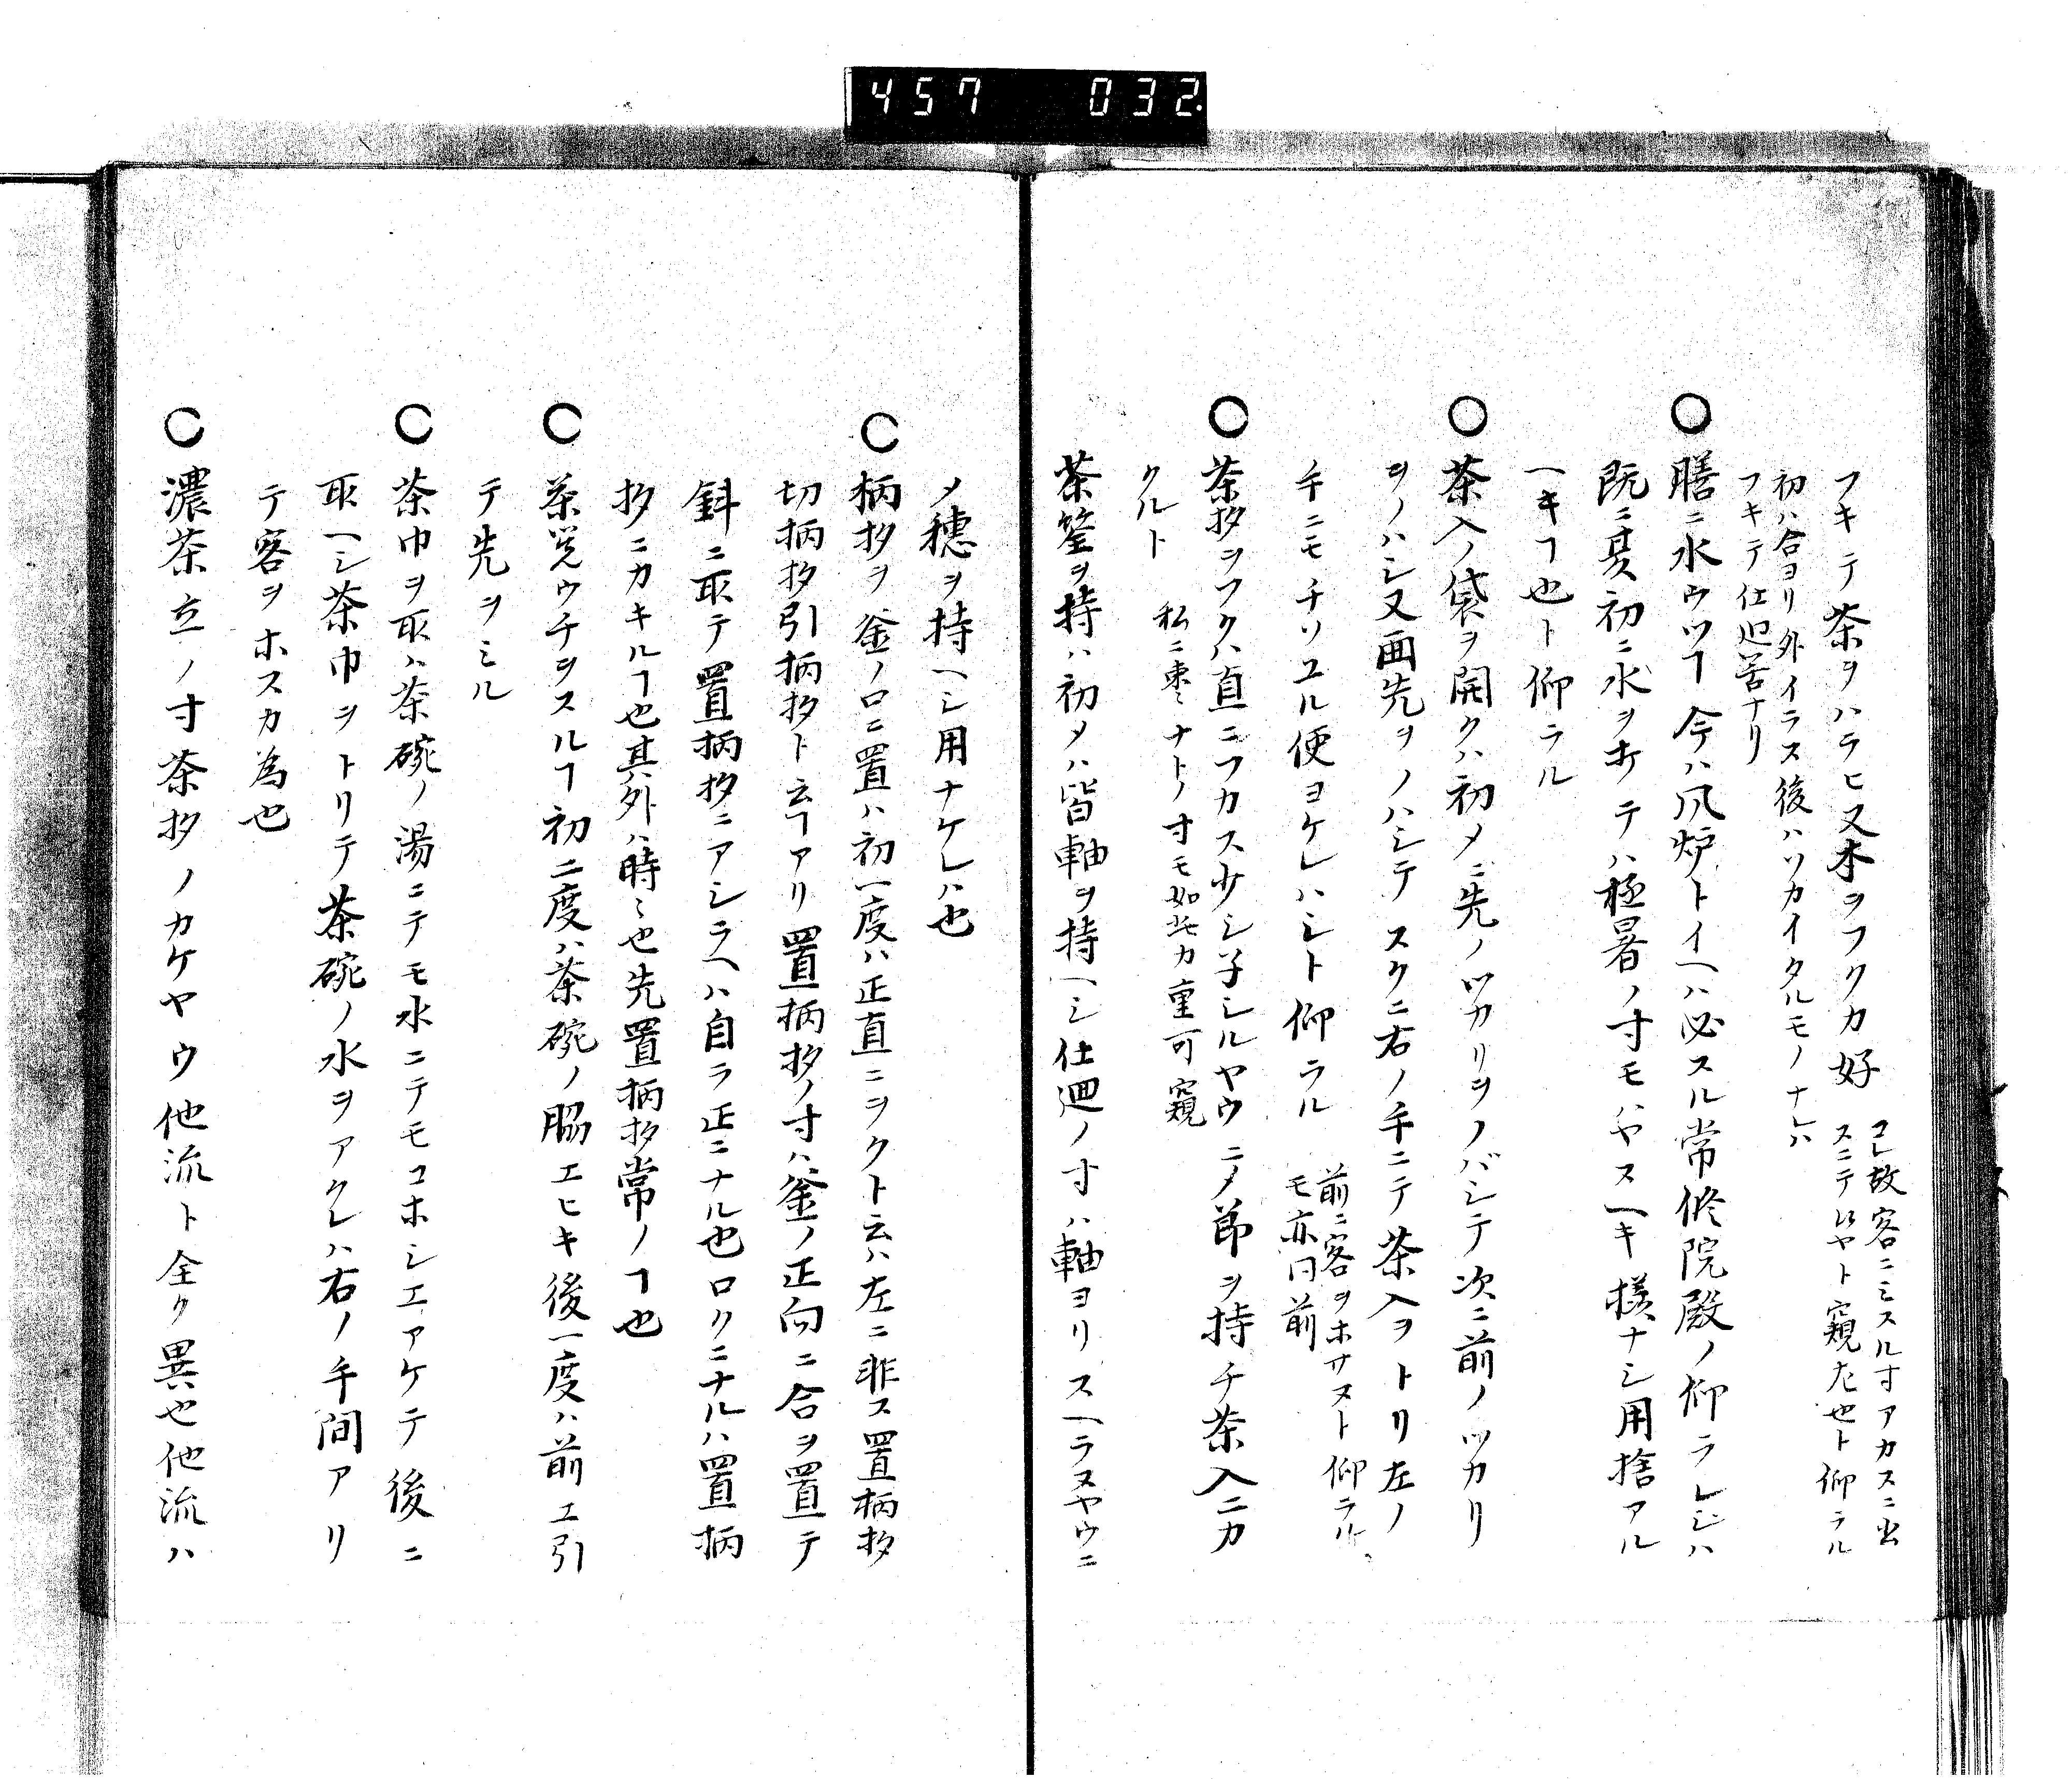 457 032
フキテ茶ヲハラヒ又木ヲフクカ好
コレ故客ニミスル寸アカスニ出
スニテハヤト窺尤也ト仰ラル
初ハ合ヨリ外イラス後ハツカイタルモノナレハ
フキテ仕廻筈ナリ
○膳ニ水ウツヿ今ハ風炉トイヘハ必スル常修院殿ノ仰ラレシハ
既ニ夏初ニ水ヲ打テハ極暑ノ寸モハヤスヘキ様ナシ用捨アル
ヘキヿ也ト仰ラル
○茶入ノ袋ヲ開クハ初メニ先ノツカリヲノバシテ次ニ前ノツカリ
ヲノハシ又両先ヲノハシテスクニ右ノ手ニテ茶入ヲトリ左ノ
手ニモチソユル便ヨケレハシト仰ラル
前ニ客ヲホサスト仰ラル
モ亦同前
○茶杓ヲフクハ直ニフカス少シ子シルヤウニメ節ヲ持チ茶入ニカ
クルト
私ニ棗ミナトノ寸モ如此カ重可窺
茶筌ヲ持ハ初メハ皆軸ヲ持ヘシ仕廻ノ寸ハ軸ヨリスヘラヌヤウニ
メ穂ヲ持ヘシ用ナケレハ也
○柄杓ヲ釜ノ口ニ置ハ初一度ハ正直ニヲクト云ハ左ニ非ス置柄杓
切柄杓引柄杓ト云ヿアリ置柄杓ノ寸ハ釜ノ正向ニ合ヲ置テ
斜ニ取テ置柄杓ニアシラヘハ自ラ正ニナル也ロクニナルハ置柄
杓ニカキルヿ也其外ハ時ミ也先置柄杓常ノヿ也
○茶筅ウチヲスルヿ初二度ハ茶碗ノ脇エヒキ後一度ハ前エ引
テ先ヲミル
○茶巾ヲ取ハ茶碗ノ湯ニテモ水ニテモコホシエアケテ後ニ
取ヘシ茶巾ヲトリテ茶碗ノ水ヲアクレハ右ノ手間アリ
テ客ヲホスカ為也
○濃茶立ノ寸茶杓ノカケヤウ他流ト全ク異也他流ハ